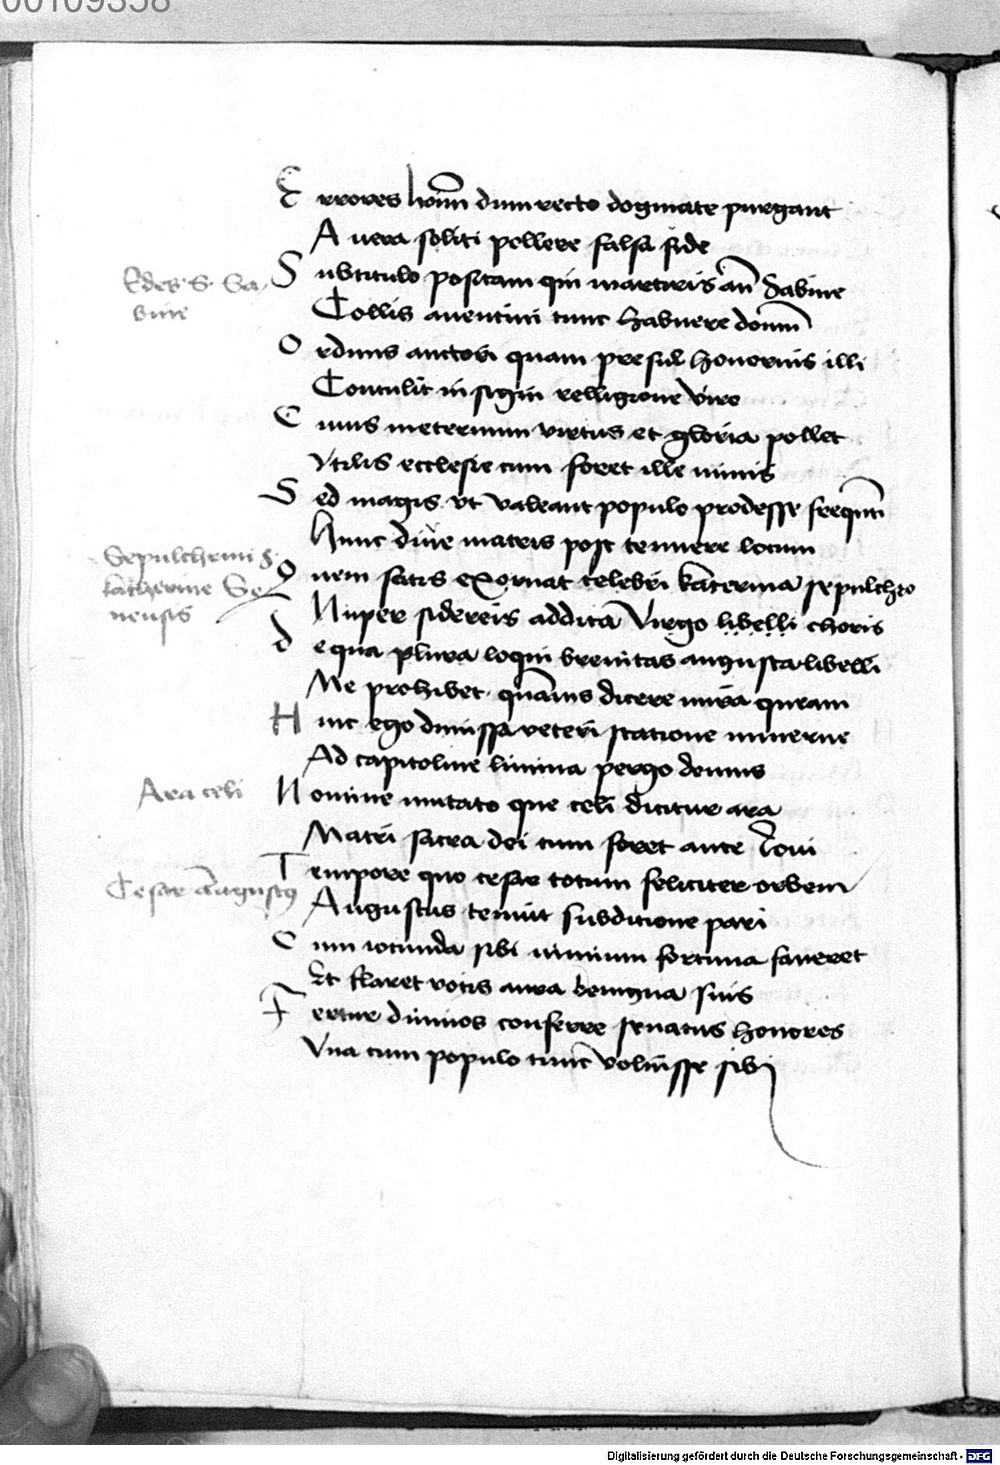 00109358
Errores homĩm dum recto dogmate purgant
A uera soliti pellere falsa fide
Edes S. Sa
bine
Sub titulo positam qui martiris añ Sabine
Collis auentini tunc habuere domũ
Ordinis auctori quam presul honorius illi
Contulit insigni relligione viro
Cuius in eternum virtus et gloria pollet
Vtilis ecclesie cum foret ille nimis
Sed magis vt valeant populo prodesse frequñti
Hunc diue matris post tenuere locum
Sepulchrum S.
katherine Se
nensis
Quem satis exornat celebri katerina sepulchro
Nuper sidereis addita Virgo libelli choris
de qua plura loqui breuitas angusta libelli
Me prohibet quãuis dicere mira queam
Hinc ego dimissa veteri statione minerue
Ad capitoline limina pergo domus
Ara celi
Nomine mutato que celi dicitur ara
Matri sacra dei cum foret ante Ioui
Cesar Augustus
Tempore quo cesar totum feliciter orbem
Augustus tenuit sub ditione pari
Cum iocunda sibi nimium fortuna faueret
Et flaret votis aura benigna suis
Fertur diuinos conferre senatus honores
Vna cum populo tunc voluisse sibi
Digitalisierung gefördert durch die Deutsche Forschungsgemeinschaft - DFG